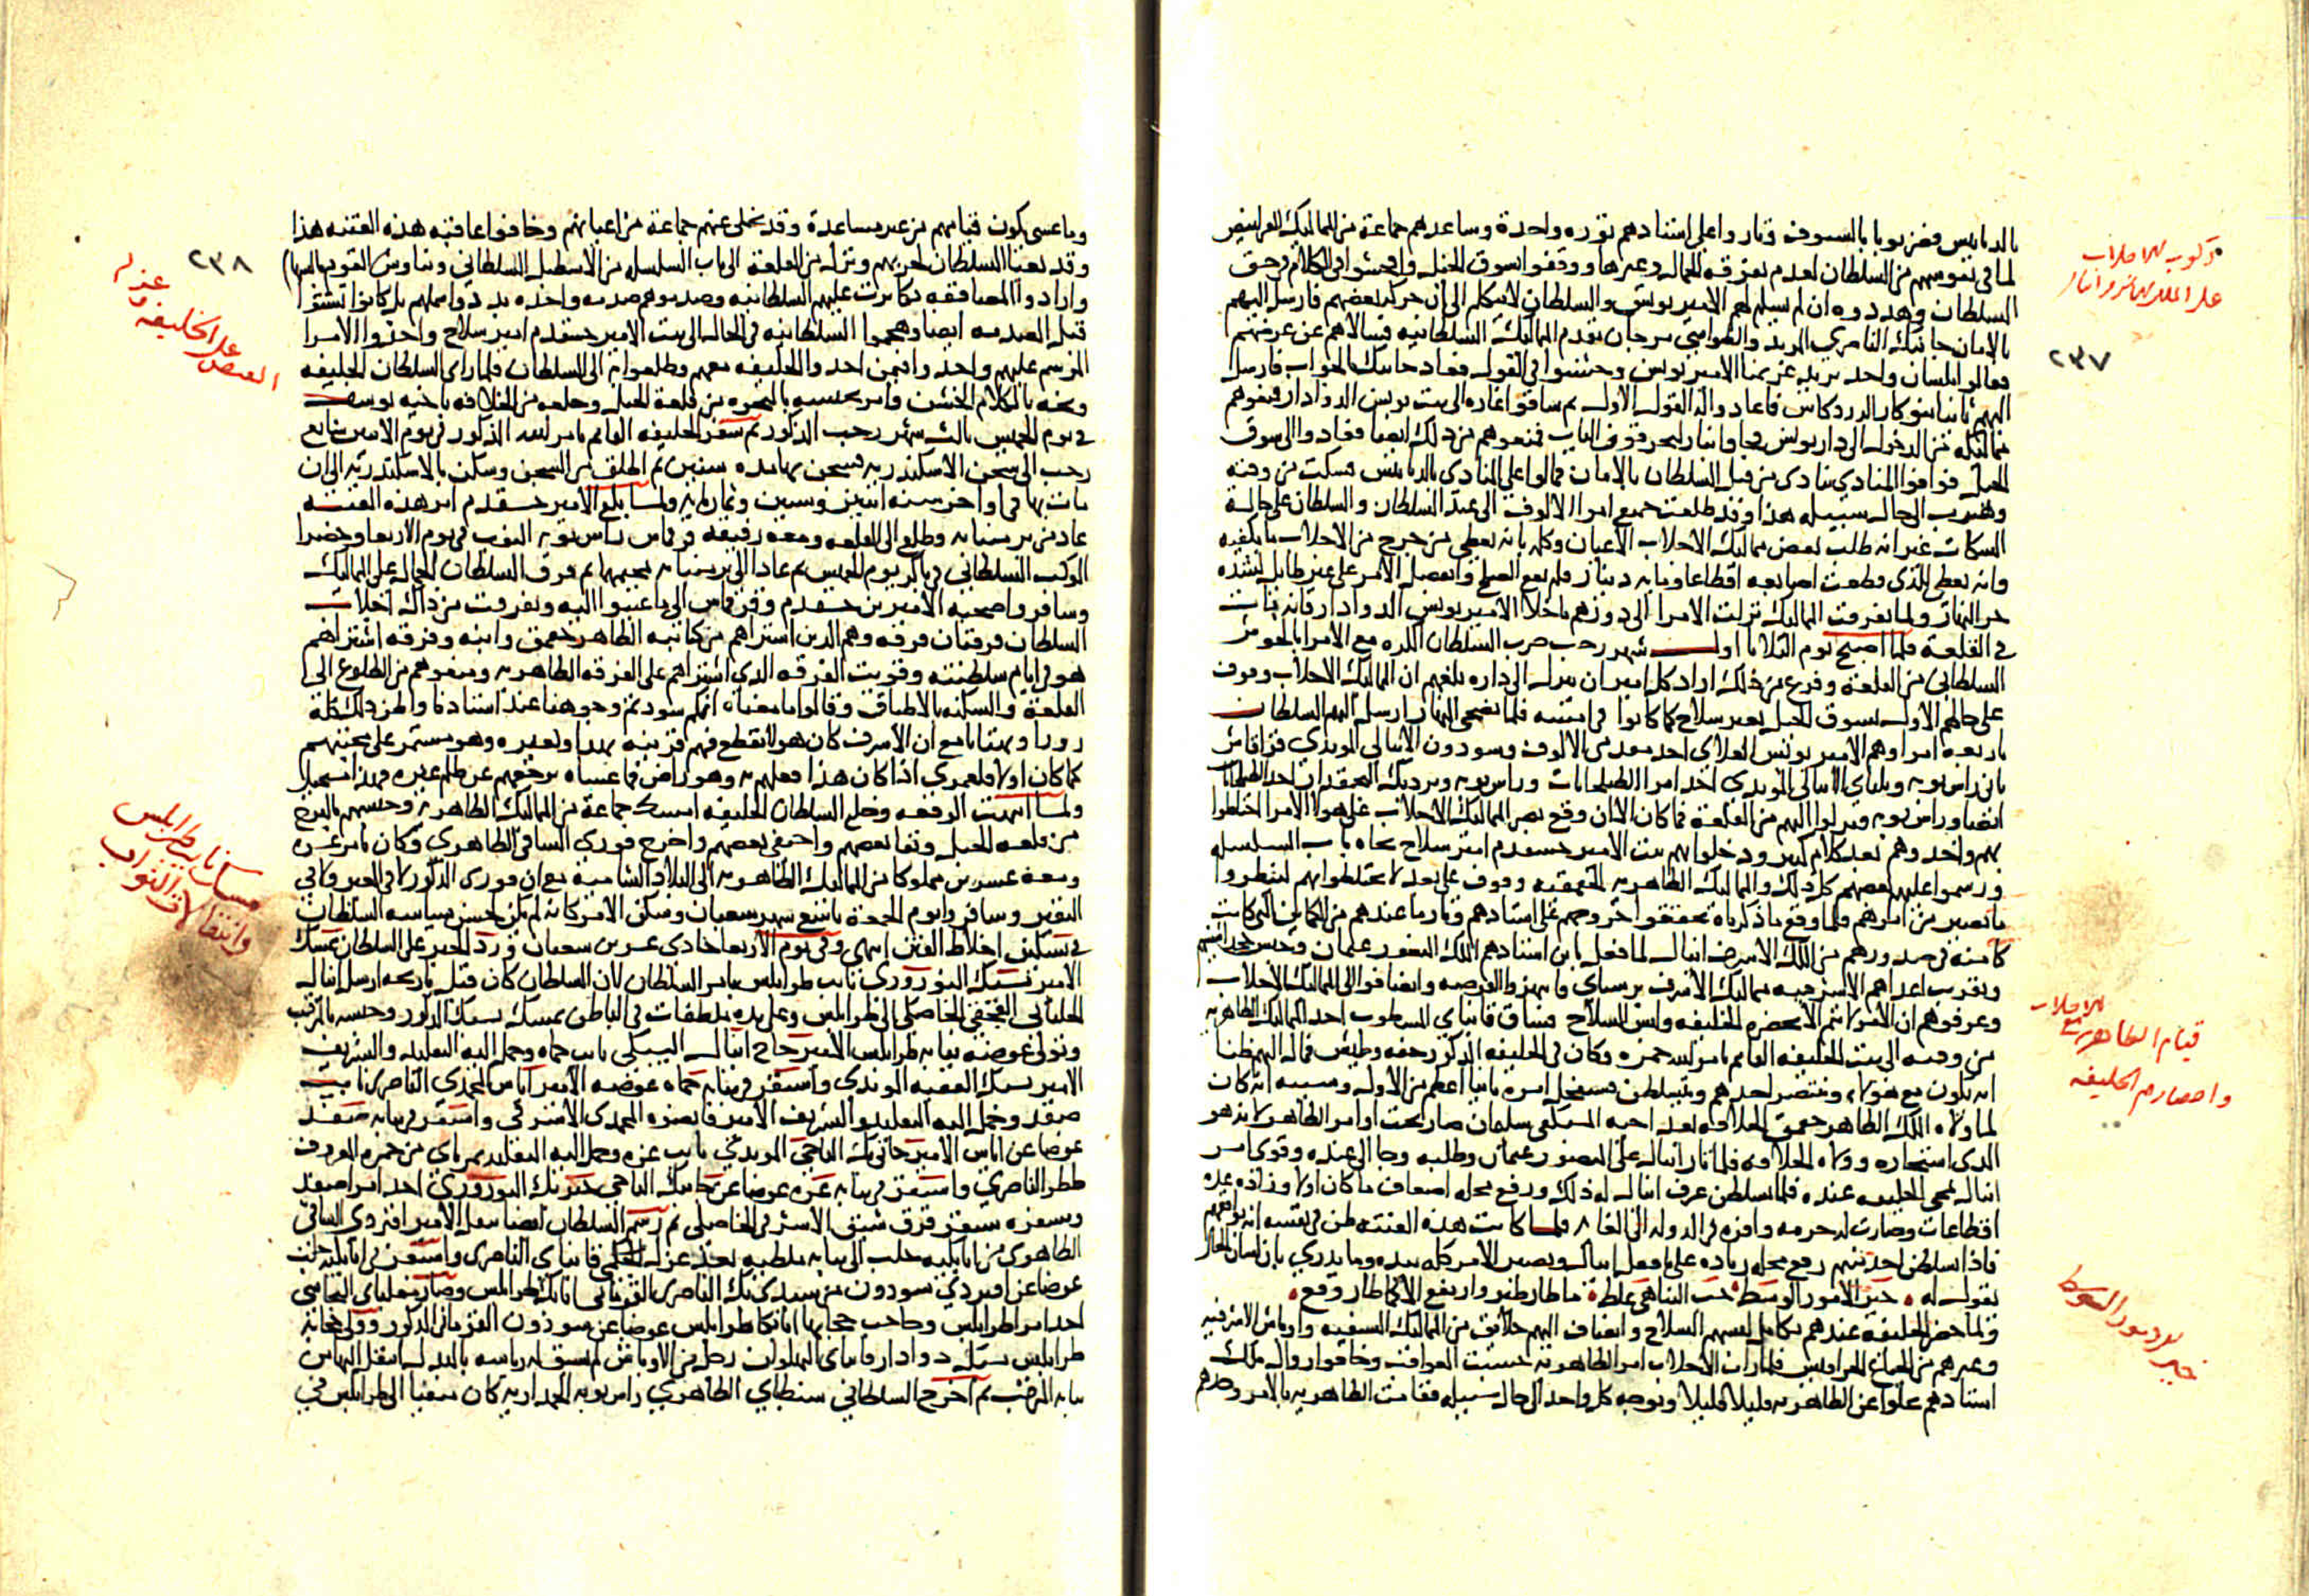 بالدبابيس فضربوها بالسيوف وثاروا على استاذهم ثوره واحدة وساعدهم جماعة من المماليك القرانيص
لما في نفوسهم من السلطان لعدم تفرقه الجمال وغيرها ووقفوا بسوق الخيل وافحشوا في الكلام في حق
السلطان وهددوه ان لم يسلم لهم الامير يونس والسلطان لا يتكلم الى ان حرك بعضهم فارسل اليهم
بالامان جانبك الناصري المرتد والطواشي مرجان مقدم المماليك السلطانيه فسالاهم عن غرضهم
فقالوا بلسان واحد نريد غريمنا الامير يونس وخشنوا في القول فعاد جانبك بالجواب فارسل
اليهم ثانيا سنقر الزردكاش فاعادوا له القول الاول ثم ساقوا غاره الى بيت يونس الدوادار فمنعوهم
مماليكه من الدخول الى دار يونس فجاوا بنار ليحرقوا الباب فمنعوهم من ذلك ايضا فعادوا الى سوق
الخيل فوافوا المنادي ينادي من قبل السلطان بالامان فمالوا على المنادي بالدبابيس فسكت من وقته
وهرب الى حال سبيله هذا وقد طلعت جميع امرا الالوف الى عند السلطان والسلطان على حاله
السكات غير انه طلب بعض مماليك الاجلاب الاعيان وكلمه بانه يعطي من جرح من الاجلاب ما يكفيه
وانه يعطي للذي قطعت اصابعه اقطاعا ومايه دينار فلم يقع الصلح وانفصل الامر على غير طايل لشده
حر النهار ولما تفرقت المماليك نزلت الامرا الى دورهم ما خلا الامير يونس الدوادار فانه بات
في القلعة فلما اصبح يوم الثلاثا اول شهر رجب ضرب السلطان الكره مع الامرا بالحوش
السلطاني من القلعة وفرغ من ذلك اراد كل امير ان ينزل الى داره بلغهم ان المماليك الاجلاب وقوف
على حالهم الاول بسوق الخيل بغير سلاح كما كانوا في امسه فلما تضحى النهار ارسل اليهم السلطان
باربعه امرا وهم الامير يونس العلاي احد مقدمي الالوف وسودون الاينالي المويدي قراقاش
ثاني راس نوبه ويلباي الاينالي المويدي احد امرا الطبلخانات وراس نوبه وبردبك البجمقدار احد الطبلخانات
ايضا وراس نوبه فنزلوا اليهم من القلعة فما كان الا ان وقع بصر المماليك الاجلاب على هولا الامرا احتاطوا
بهم واخذوهم بعد كلام كثير ودخلوا بهم بيت الامير خشقدم امير سلاح تجاه باب السلسله
ورسموا عليهم بعضهم كل ذلك والمماليك الظاهريه الجقمقيه وقوف على بعد لا يختلطوا بهم لينظروا
ما يصير من امرهم فلما وقع ما ذكرناه تحققوا خروجهم على استاذهم وثار ما عندهم من الكماين التي كانت
كامنه في صدورهم من الملك الاشرف اينال لما فعل بابن استاذهم الملك المنصور عثمان وحبس خجداشيتهم
وتقريب اعداهم الاشرفيه مماليك الاشرف برسباي وانتهزوا الفرصه وانضافوا الى المماليك الاجلاب
وعرفوهم ان الامر لا يتم الا بحضره الخليفه ولبس السلاح فساق قانباي المسطوب احد المماليك الظاهريه
من وقته الى بيت الخليفه القايم بامر الله حمزه وكان في الخليفه المذكور خفه وطيش فمال اليهم ظنا
انه يكون مع هولاء وينتصر احدهم ويتسلطن فيستفحل امره ثانيا اعظم من الاول وسببه انه كان
لما ولاه الملك الظاهر جقمق الخلافه بعد اخيه المستكفي سليمان صار تحت اوامر الظاهر لانه هو
الذي استخاره وولاه الخلافه فلما ثار اينال على المنصور عثمان وطلبه وجا الى عنده وقوى امر
اينال بمجي الخليفه عنده فلما تسلطن عرف اينال له ذلك ورفع محله اضعاف ما كان اولا وزاده عده
اقطاعات وصارت له حرمه وافره في الدوله الى الغايه فلما كانت هذه الفتنه ظن في نفسه انه يوافقهم
فاذا تسلطن احد منهم رفع محله زياده على ما فعل اينال ويصير الامر كله بيده وما يدري بان لسان الحال
يقول له • خير الامور الوسط حب التناهي غلط • ما طار طير وارتفع الا كما طار وقع •
ولما حضر الخليفه عندهم تكامل لبسهم السلاح وانضاف اليهم خلايق من المماليك السيفيه واوباش الاشرفيه
وغيرهم من الجياع الحرافيش فلما رات الاجلاب امر الظاهريه خشيت العواقب وخافوا زوال ملك
استاذهم تخلوا عن الظاهريه قليلا قليلا وتوجه كل واحد الى حال سبيله فقامت الظاهريه بالامر وحدهم
ركوب الاجلاب
على الملك الاشرف اينال
٢٣٧
قيام الظاهريه مع الاجلاب
واحضارهم الخليفه
خير الامور الوسط
وما عسى يكون قيامهم من غير مساعدة وقد تخلى عنهم جماعة من اعيانهم وخافوا عاقبه هذه الفتنه هذا
وقد تعبا السلطان لحربهم ونزل من القلعة الى باب السلسله من الاسطبل السلطاني وتناوش القوم بالسهام
وارادوا المصاففه تكاثرت عليهم السلطانيه وصدموهم صدمه واحده بددوا شملهم بل كانوا تشتتوا
قبل الصدمه ايضا وهجموا السلطانيه في الحال الى بيت الامير خشقدم امير سلاح واخذوا الامرا
المرسم عليهم واخذوا فيمن اخذوا الخليفه معهم وطلعوا بهم الى السلطان فلما راى السلطان الخليفه
وبخه بالكلام الخشن وامر بحبسه بالبحره من قلعة الجبل وخلعه من الخلافه باخيه يوسف
في يوم الخميس ثالث شهر رجب المذكور ثم سفر الخليفه القايم بامر الله المذكور في يوم الاثنين سابع
رجب الى سجن الاسكندريه فسجن بها مده سنين ثم اطلق من السجن وسكن بالاسكندريه الى ان
مات بها في اواخر سنه اثنين وستين وثمان مايه ولما بلغ الامير خشقدم امر هذه الفتنه
عاد من بر منبابه وطلع الى القلعه ومعه رفيقه قرقماس راس نوبه النوب في يوم الاربعا وحضرا
الموكب السلطاني في باكر يوم الخميس ثم عادا الى بر منبابه بخيمهما ثم فرق السلطان الجمال على المماليك
وسافروا صحبه الاميرين خشقدم وقرقماس الى ما عينوا اليه وتفرقت من ذاك اجلاب
السلطان فرقتان فرقه وهم الذين اشتراهم من كتابيه الظاهر جقمق وابنه وفرقه اشتراهم
هو في ايام سلطنته وقويت الفرقه الذي اشتراهم على الفرقه الظاهريه ومنعوهم من الطلوع الى
القلعة والسكنه بالاطباق وقالوا ما معناه انكم سودتم وجوهنا عند استاذنا واظن ذلك كله
زورا وبهتانا مع ان الاشرف كان هو لا يقطع فيهم قرينه بهذا ولغيره وهو مستمر على محبتهم
كما كان اولا فلعمري اذا كان هذا فعلهم به وهو راض فما عساه يرجعهم عن ظلم غيره فهذا مستحيل
ولما انتهت الوقعه وخلع السلطان الخليفه امسك جماعة من المماليك الظاهريه وحبسهم بالبرج
من قلعه الجبل ونفا بعضهم واختفى بعضهم واخرج قوزي الساقي الظاهري وكان تامر عشره
ومعه عشرين مملوكا من المماليك الظاهريه الى البلاد الشاميه مع ان قوزي المذكور لا في العير ولا في
النفير وسافروا يوم الجمعة تاسع شهر شعبان وسكن الامر كانه لم يكن لحسن سياسه السلطان
في تسكين اخلاط الفتن انتهى وفي يوم الاربعا حادي عشرين شعبان ورد الخبر على السلطان بمسك
الامير يشبك النوروزي نايب طرابلس بامر السلطان لان السلطان كان قبل تاريخه ارسل اينال
الجلباني القجقي الخاصكي الى طرابلس وعلى يده ملطفات في الباطن بمسك يشبك المذكور وحبسه بالمرقب
وتولى عوضه نيابه طرابلس الامير حاج اينال اليشبكي نايب حماه وحمل اليه التقليد والتشريف
الامير يشبك الفقيه المويدي واستقر في نيابه حماه عوضه الامير اياس المحمدي الناصري نايب
صفد وحمل اليه التقليد والتشريف الامير قانصوه المحمدي الاشرفي واستقر في نيابه صفد
عوضا عن اياس الامير جانبك التاجي المويدي نايب غزه وحمل اليه التقليد تمرباي من حمزه المعروف
ططر الناصري واستقر في نيابه غزه عوضا عن جانبك التاجي خيربك النوروزي احد امرا صفد
وسفره سنقر قرق شبق الاشرفي الخاصكي ثم رسم السلطان ايضا بنقل الامير اقبردي الساقي
الظاهري من اتابكيه حلب الى نيابه ملطيه بعد عزل الحكمي قانباي الناصري واستقر في اتابكيه حلب
عوضا عن اقبردي سودون من سيدي بك الناصري القرماني اتابك طرابلس وصار مغلباي البجاسي
احد امرا طرابلس وحاجب حجابها اتابكا طرابلس عوضا عن سودون القرماني المذكور وولى حجابه
طرابلس يشبك دوادار قانباي البهلوان رجل من الاوباش لم يسبق له رياسه بالبذل انتقل اليها من
نيابه المرقب ثم اخرج السلطاني سنطباي الظاهري راس نوبه الجمداريه كان منفيا الى طرابلس في
٢٣٨
عزل
الخليفه و
القبض على
مسك نايب طرابلس
وانتقالات النواب